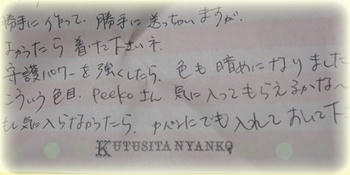 勝手に作って、勝手に送っちゃいますが、
よかったら着けて下さいネ
守護パワーを強くしたら、色も暗めになりました
こういう色目、Peekoさん気に入ってもらえるかな〜
もし気に入らなかったら、カバンにでも入れておいて下
KUTUSITA NYANKO